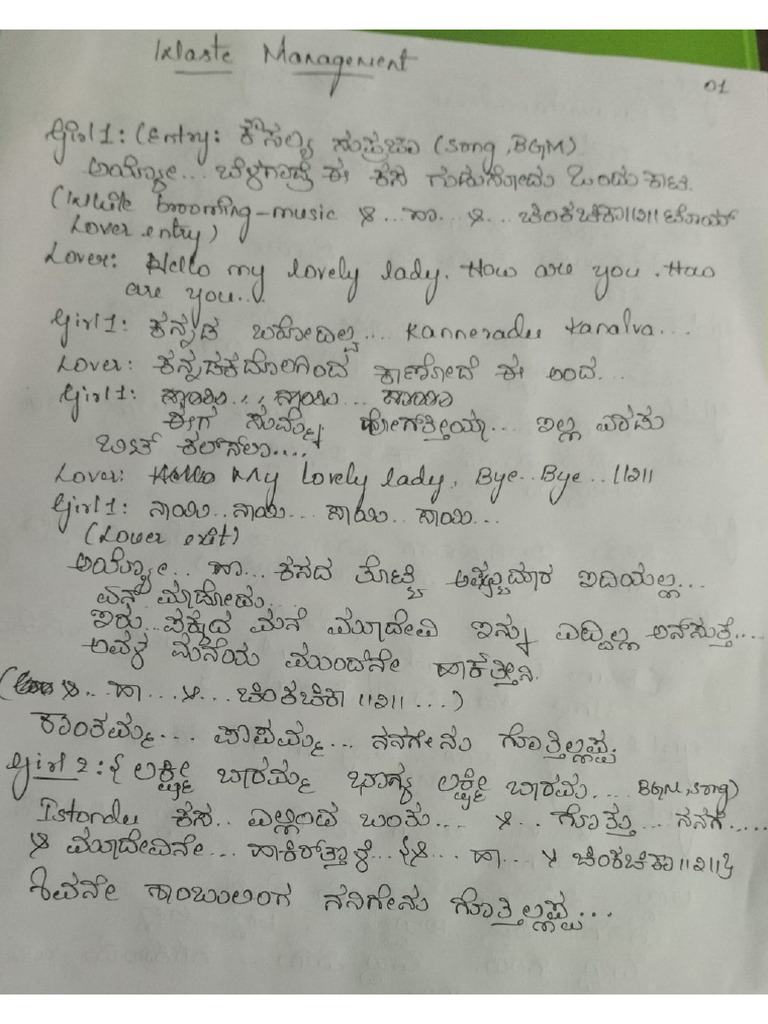 Waste Management
01
Girl 1: (Entry: ಕೌಸಲ್ಯ ಸುಪ್ರಜಾ (Song, BGM)
ಅಯ್ಯೋ... ಬೆಳಗಾದ್ರೆ ಈ ಕಸ ಗುಡಿಸೋದು ಒಂದು ಕಾಟ.
(While brooming-music ... ಹಾ... ಚಿಂಕಚಿಕಾ ||೨||
Lover entry)
Lover: Hello my lovely lady. How are you. How
are you...
Girl 1: ಕನ್ನಡ ಬರೋದಿಲ್ವ... Kanneradu Kanalva...
Lover: ಕನ್ನಡಕದೊಳಗಿಂದ ಕಾಣೋದೆ ಈ ಅಂದ...
Girl 1: ಹಾಯಿ... ಹಾಯಿ... ಹಾಯಿ
ಈಗ ಸುಮ್ನೆ ಹೋಗ್ತೀಯಾ... ಇಲ್ಲ
ಬಿಟ್ ಕಲ್ಸ್‌ಲಾ....
Lover: My Lovely lady, Bye.. Bye.. ||೨||
Girl 1: ನಾಯಿ.. ನಾಯಿ... ಹಾಯಿ.. ಹಾಯಿ...
(Lover exit)
ಅಯ್ಯೋ... ಹಾ... ಕಸದ ತೊಟ್ಟಿ ಅಷ್ಟುದೂರ ಇದಿಯಲ್ಲ...
ಏನ್ ಮಾಡೋದು...
ಇರು.. ಪಕ್ಕದ ಮನೆ ಮೂದೇವಿ ಇನ್ನು ಎದ್ದಿಲ್ಲ ಅನ್ಸುತ್ತೆ....
ಅವಳ ಮನೆಯ ಮುಂದೆನೇ ಹಾಕ್ತೀನಿ.
ಹಾ... ಚಿಂಕಚಿಕಾ ||೨|| ...)
ಶಾಂತಮ್ಮ... ಪಾಪಮ್ಮ... ನನಗೇನು ಗೊತ್ತಿಲ್ಲಪ್ಪ.
Girl 2: { ಲಕ್ಷ್ಮೀ ಬಾರಮ್ಮ ಭಾಗ್ಯ ಲಕ್ಷ್ಮೀ ಬಾರಮ್ಮ... BGM, song)
Istondu ಕಸ.. ಎಲ್ಲಿಂದ ಬಂತು... ಗೊತ್ತು... ನನಗೆ.....
ಮೂದೇವಿನೇ... ಹಾಕಿರ್ತ್ತಾಳೆ ... ಹಾ... ಚಿಂಕಚಿಕಾ ||೨||}
ಶಿವನೇ ಶಾಂಬುಲಿಂಗ ನನಗೇನು ಗೊತ್ತಿಲ್ಲಪ್ಪ...